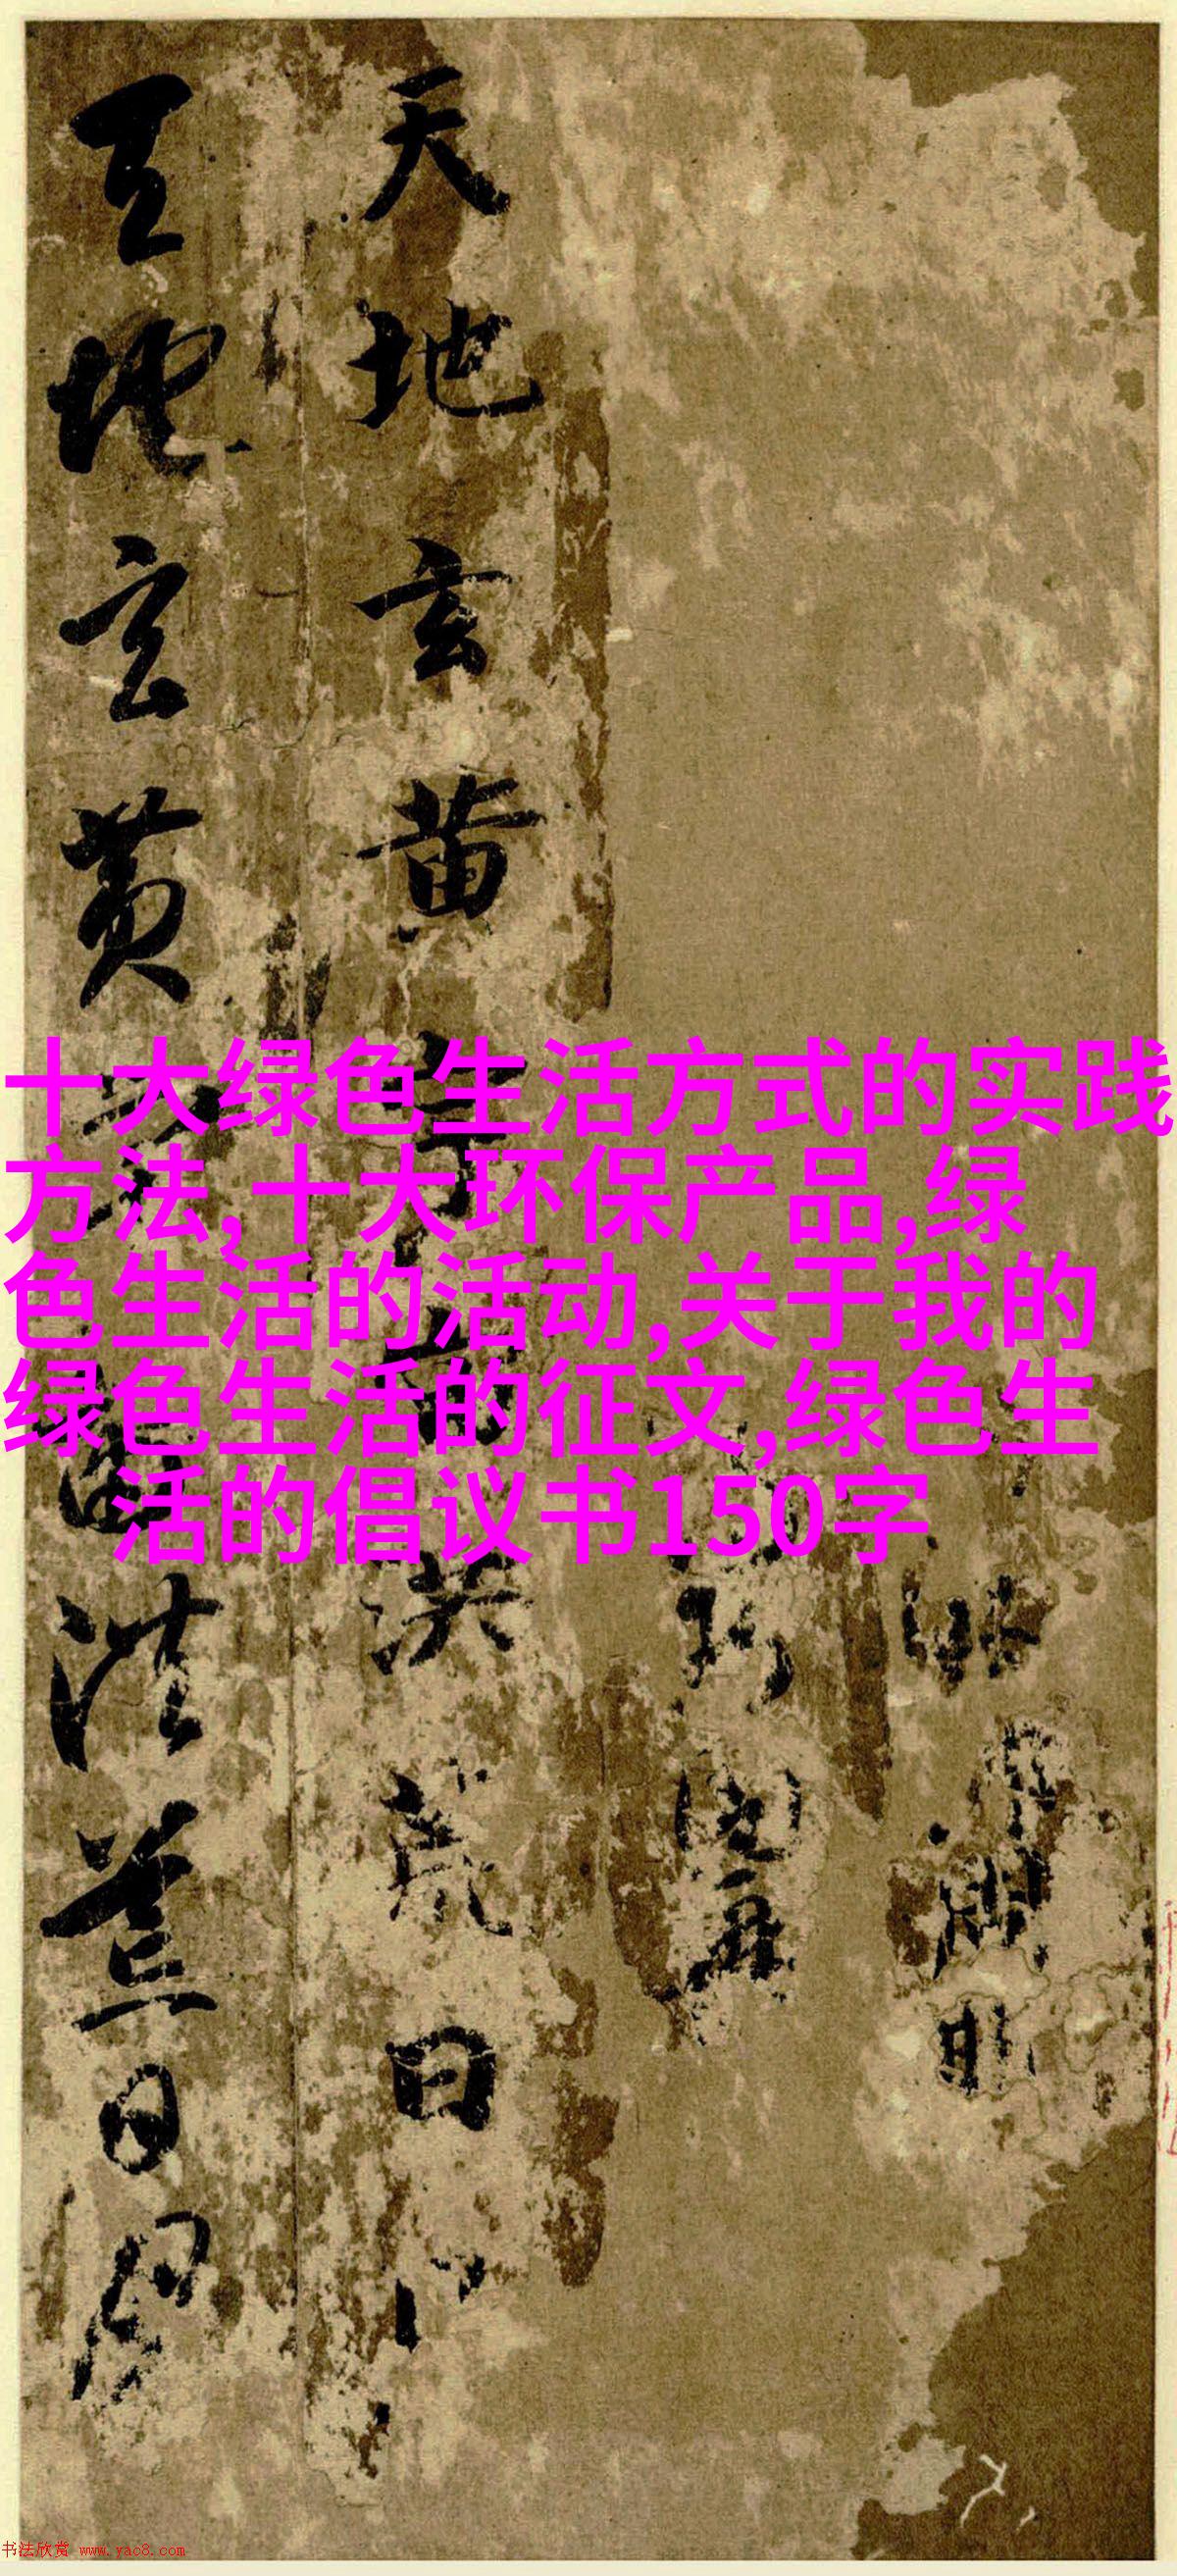 天地玄黄洪荒日
天地玄黄宙洪荒日月
十大绿色生活方式的实践
方法,十大环保产品,绿
色生活的活动,关于我的
绿色生活的征文,绿色生
活的倡议书150字
书法欣赏 www.yac8.com